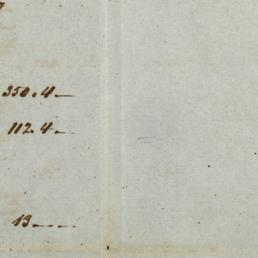 350.4–
112.4–
13––